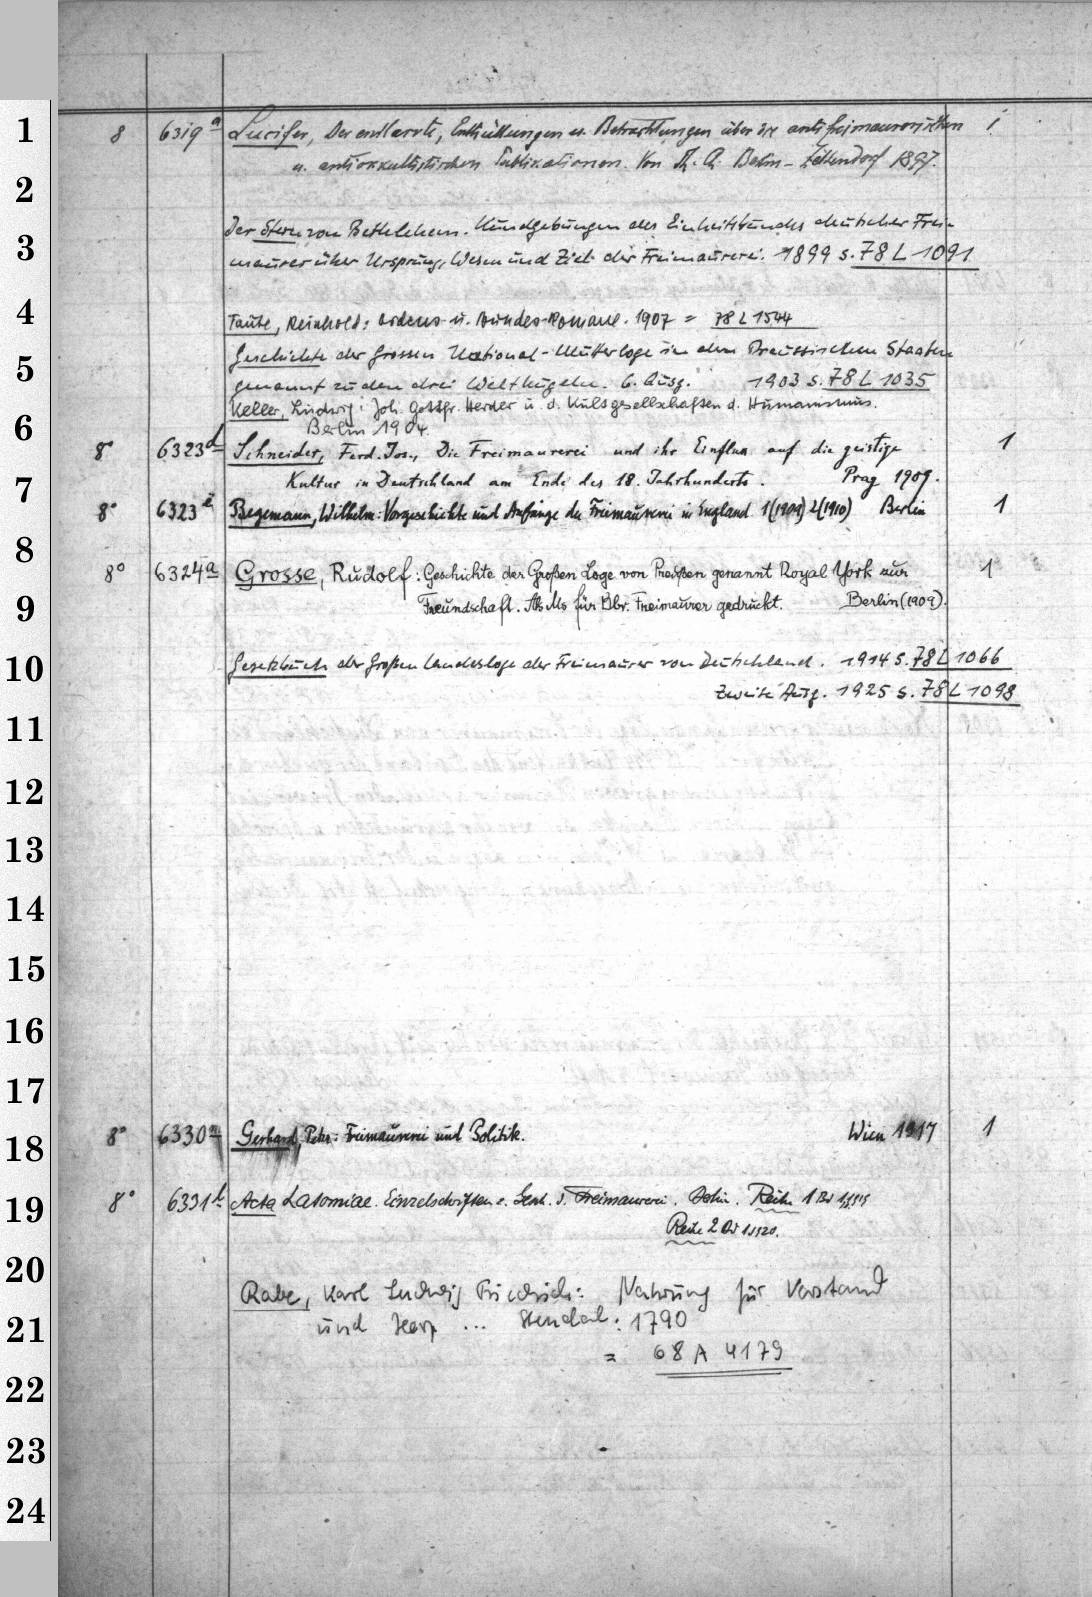 1
8 6319a Lucifer, Der entlarvte, Enthüllungen u. Betrachtungen über die antifreimaurerischen 1
u. antiokkultistischen Publikationen. Von Th. A. Behm-Zettendorf 1897.
2
Der Stern von Bethlehem. Kundgebungen des Einheitsbundes deutscher Frei-
3
maurer über Ursprung, Wesen und Ziel der Freimaurerei. 1899 s. 78 L 1091
4
Taute, Reinhold: Ordens- u. Bundes-Romane. 1907 = 78 L 1544
Geschichte der Grossen National-Mutterloge in den Preussischen Staaten
5
genannt zu den drei Weltkugeln. 6. Ausg. 1903 s. 78 L 1035
Keller, Ludwig: Joh. Gottfr. Herder u. d. Kultgesellschaften d. Humanismus.
6
Berlin 1904.
8° 6323d Schneider, Ferd. Jos., Die Freimaurerei und ihr Einfluss auf die geistige 1
7
Kultur in Deutschland am Ende des 18. Jahrhunderts. Prag 1909.
8° 6323i Begemann, Wilhelm: Vorgeschichte und Anfänge der Freimaurerei in England 1(1909) 2(1910) Berlin 1
8
8° 6324a Grosse, Rudolf: Geschichte der Großen Loge von Preußen genannt Royal York zur 1
9
Freundschaft. Als Ms für Bbr. Freimaurer gedruckt. Berlin (1909).
10
Gesetzbuch der Großen Landesloge der Freimaurer von Deutschland. 1914 s. 78 L 1066
Zweite Ausg. 1925 s. 78 L 1098
11
12
13
14
15
16
17
18
8° 6330a Gerhard, Peter: Freimaurerei und Politik. Wien 1917 1
19
8° 6331b Acta Latomiae. Einzelschriften z. Gesch. d. Freimaurerei. Reihe 1 Bd 1
Reihe 2 Bd 1 1920.
20
Rabe, Karl Ludwig Friedrich: Nahrung für Verstand
21
und Herz ... Stendal: 1790
= 68 A 4179
22
23
24